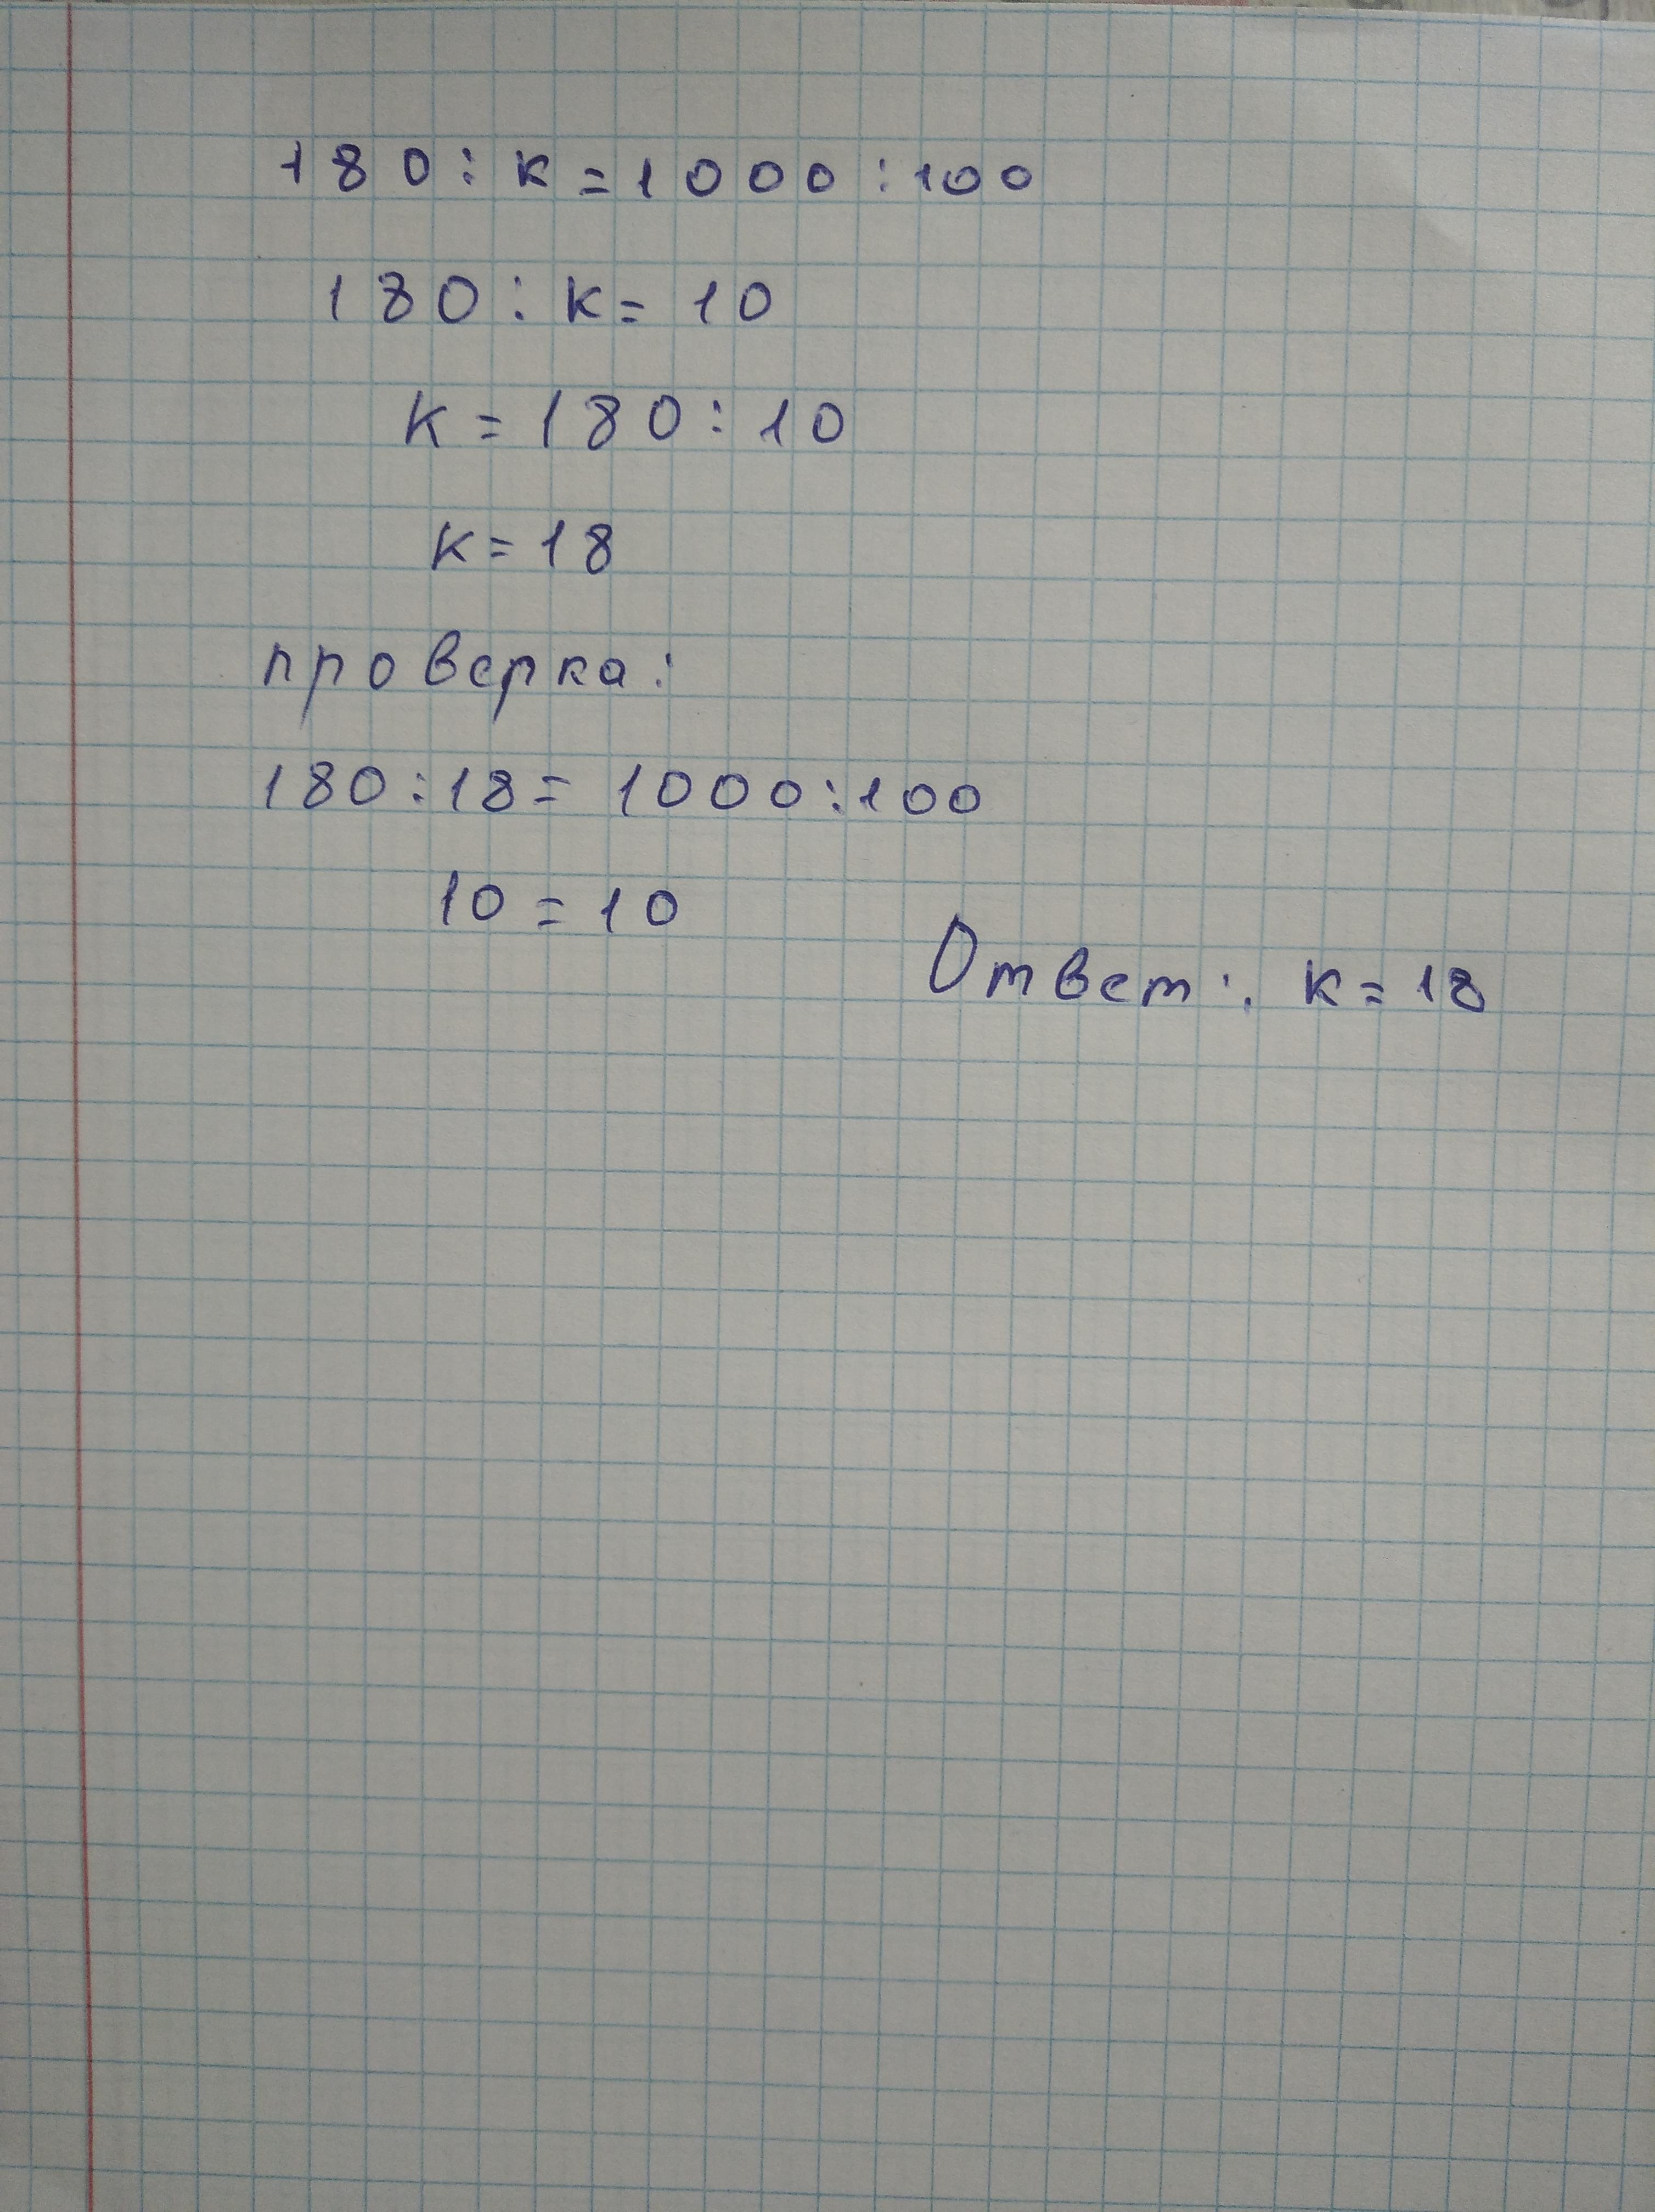 180 : к = 1000 : 100
180 : к = 10
к = 180 : 10
к = 18
проверка:
180 : 18 = 1000 : 100
10 = 10
Ответ: к = 18